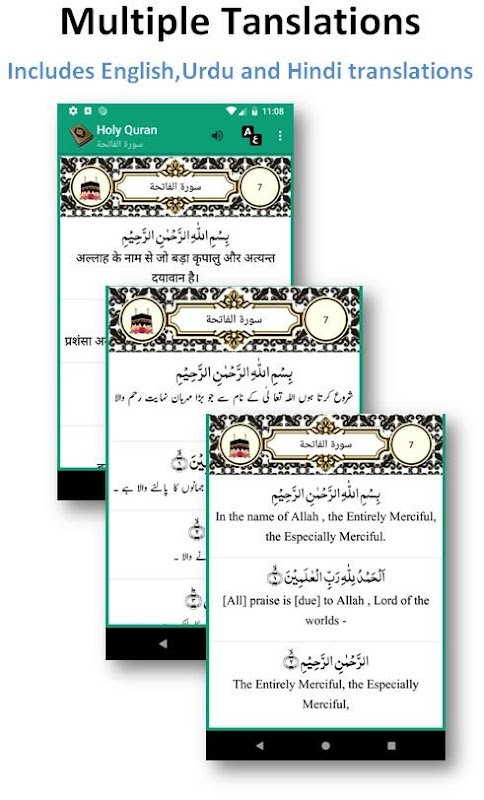 Multiple Tanslations
Includes English,Urdu and Hindi translations
11:08
Holy Quran
سورة الفاتحة
سورة الفاتحة
7
بِسْمِ اللّٰهِ الرَّحْمٰنِ الرَّحِيْمِ
अल्लाह के नाम से जो बड़ा कृपालु और अत्यन्त
दयावान है।
प्रशंसा
سورة الفاتحة
7
بِسْمِ اللّٰهِ الرَّحْمٰنِ الرَّحِيْمِ
شروع کرتا ہوں اللہ تعا لٰی کے نام سے جو بڑا مہربان نہایت رحم والا
جہانوں کا پالنے والا ہے ۔
والا ۔
سورة الفاتحة
7
بِسْمِ اللّٰهِ الرَّحْمٰنِ الرَّحِيْمِ
In the name of Allah , the Entirely Merciful,
the Especially Merciful.
اَلْحَمْدُ لِلّٰهِ رَبِّ الْعٰلَمِيْنَ ۙ‏﴿۱﴾
[All] praise is [due] to Allah , Lord of the
worlds -
الرَّحْمٰنِ الرَّحِيْمِ ۙ‏﴿۲﴾
The Entirely Merciful, the Especially
Merciful,